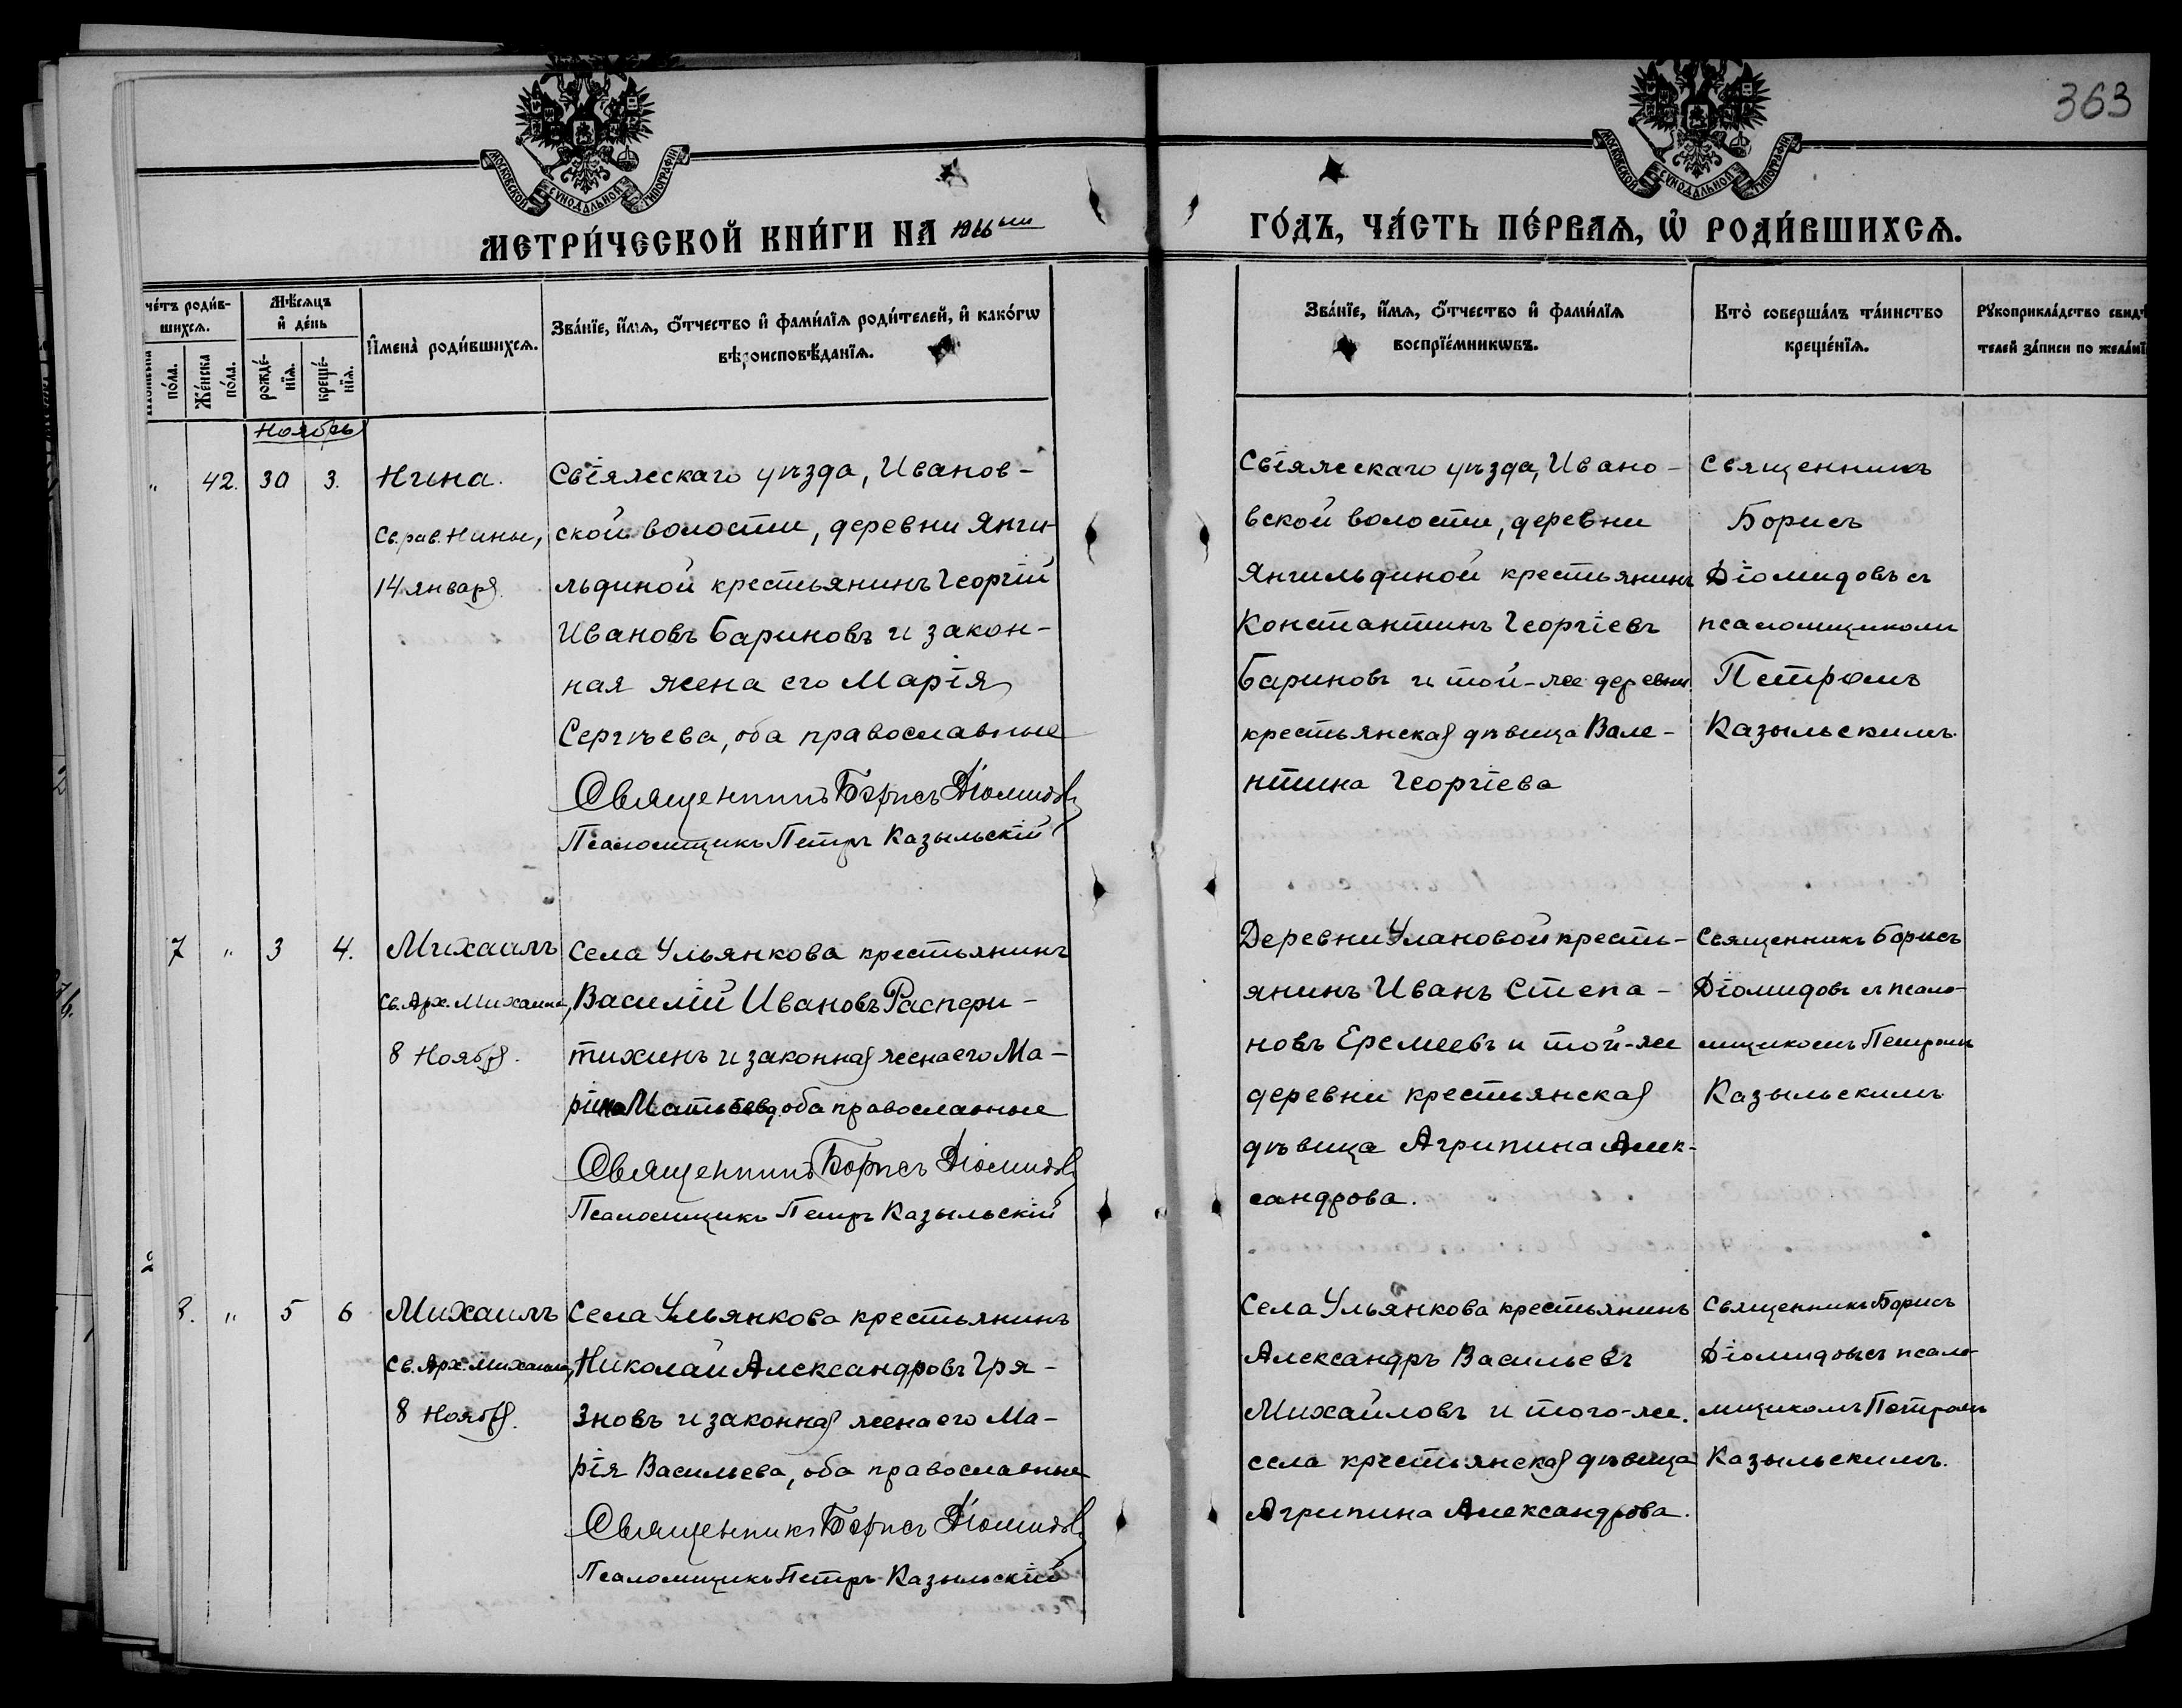 363
МОСКОВСКОЙ СУНОДАЛЬНОЙ ТИПОГРАФІИ
МОСКОВСКОЙ СУНОДАЛЬНОЙ ТИПОГРАФІИ
МЕТРИ́ЧЕСКОЙ КНИ́ГИ НА
ГО́ДЪ, ЧА́СТЬ ПЕ́РВАѦ, Ѡ҆ РОДИ́ВШИХСѦ.
че́тъ роди́в-
шихсѧ.
по́ла.
Же́нска
по́ла.
Мѣ́сѧцъ
и҆ де́нь
рожде́-
нїѧ.
креще́-
нїѧ.
И҆мена̀ роди́вшихсѧ.
Зва́нїе, и҆́мѧ, ѻ҆́тчество и҆ фами́лїѧ роди́телей, и҆ како́гѡ
вѣроисповѣ́данїѧ.
Зва́нїе, и҆́мѧ, ѻ҆́тчество и҆ фами́лїѧ
воспрїе́мникѡвъ.
Кто̀ соверша́лъ та́инство
креще́нїѧ.
Рꙋкоприкла́дство свидѣ́
телей за́писи по жела́нї
Ноябрь
" 42. 30 3.
Нина.
Св. рав. Нины,
14 января.
Свіяжскаго уѣзда, Иванов-
ской волости, деревни Янги-
льдиной крестьянинъ Георгій
Ивановъ Бариновъ и закон-
ная жена его Марія
Сергѣева, оба православные
Священникъ Борисъ Діомидовъ
Псаломщикъ Петръ Казыльскій
Свіяжскаго уѣзда, Ивано-
вской волости, деревни
Янгильдиной крестьянинъ
Константинъ Георгіевъ
Бариновъ и той-же деревни
крестьянская дѣвица Вале-
нтина Георгіева
Священникъ
Борисъ
Діомидовъ съ
псаломщикомъ
Петромъ
Казыльскимъ.
7 " 3 4.
Михаилъ
Св. Арх. Михаила,
8 Ноября.
Села Ульянкова крестьянинъ
Василій Ивановъ Распери-
тихинъ и законная жена его Ма-
оба православные
Священникъ Борисъ Діомидовъ
Псаломщикъ Петръ Казыльскій
Деревни Улановой кресть-
янинъ Иванъ Степа-
новъ Еремеевъ и той-же
деревни крестьянская
дѣвица Агрипина Алек-
сандрова.
Священникъ Борисъ
Діомидовъ съ псало-
мщикомъ Петромъ
Казыльскимъ
8. " 5 6
Михаилъ
Св. Арх. Михаила,
8 Ноября.
Села Ульянкова крестьянинъ
Николай Александровъ Гря-
зновъ и законная жена его Ма-
рія Васильева, оба православные
Священникъ Борисъ Діомидовъ
Псаломщикъ Петръ Казыльскій
Села Ульянкова крестьянинъ
Александръ Васильевъ
Михайловъ и того-же
села крестьянская дѣвица
Агрипина Александрова.
Священникъ Борисъ
Діомидовъ съ псало-
мщикомъ Петромъ
Казыльскимъ.